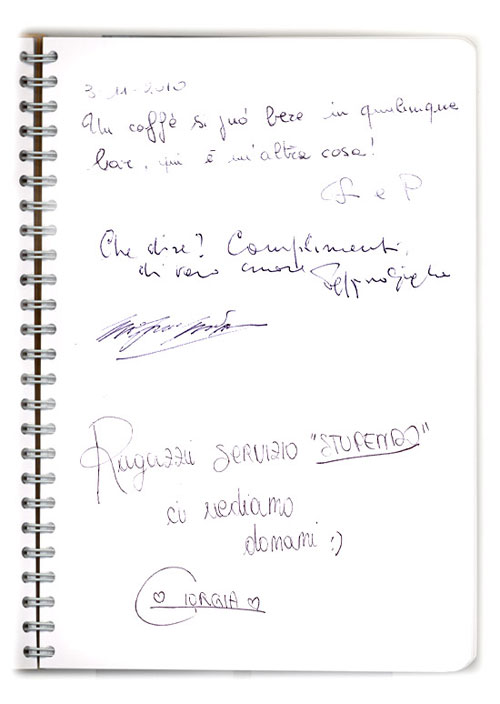 3-11-2010
Un caffè si può bere in qualunque
bar, qui è un'altra cosa!
S e P
Che dire? Complimenti,
di vero cuore
Ragazzi SERVIZIO "STUPENDO"
ci vediamo
domani :)
GIORGIA